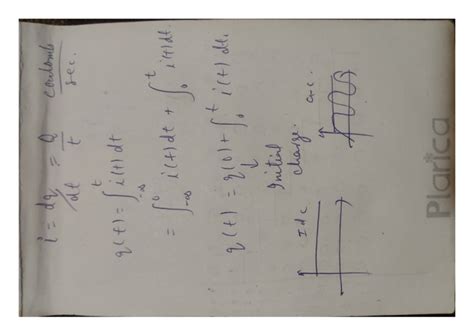 i = dq/dt = Q/t coulomb/sec.
q(t) = ∫_{-∞}^{t} i(t) dt
= ∫_{-∞}^{0} i(t) dt + ∫_{0}^{t} i(t) dt.
q(t) = q(0) + ∫_{0}^{t} i(t) dt.
↓
Initial
charge.
I dc
a.c.
Plarica